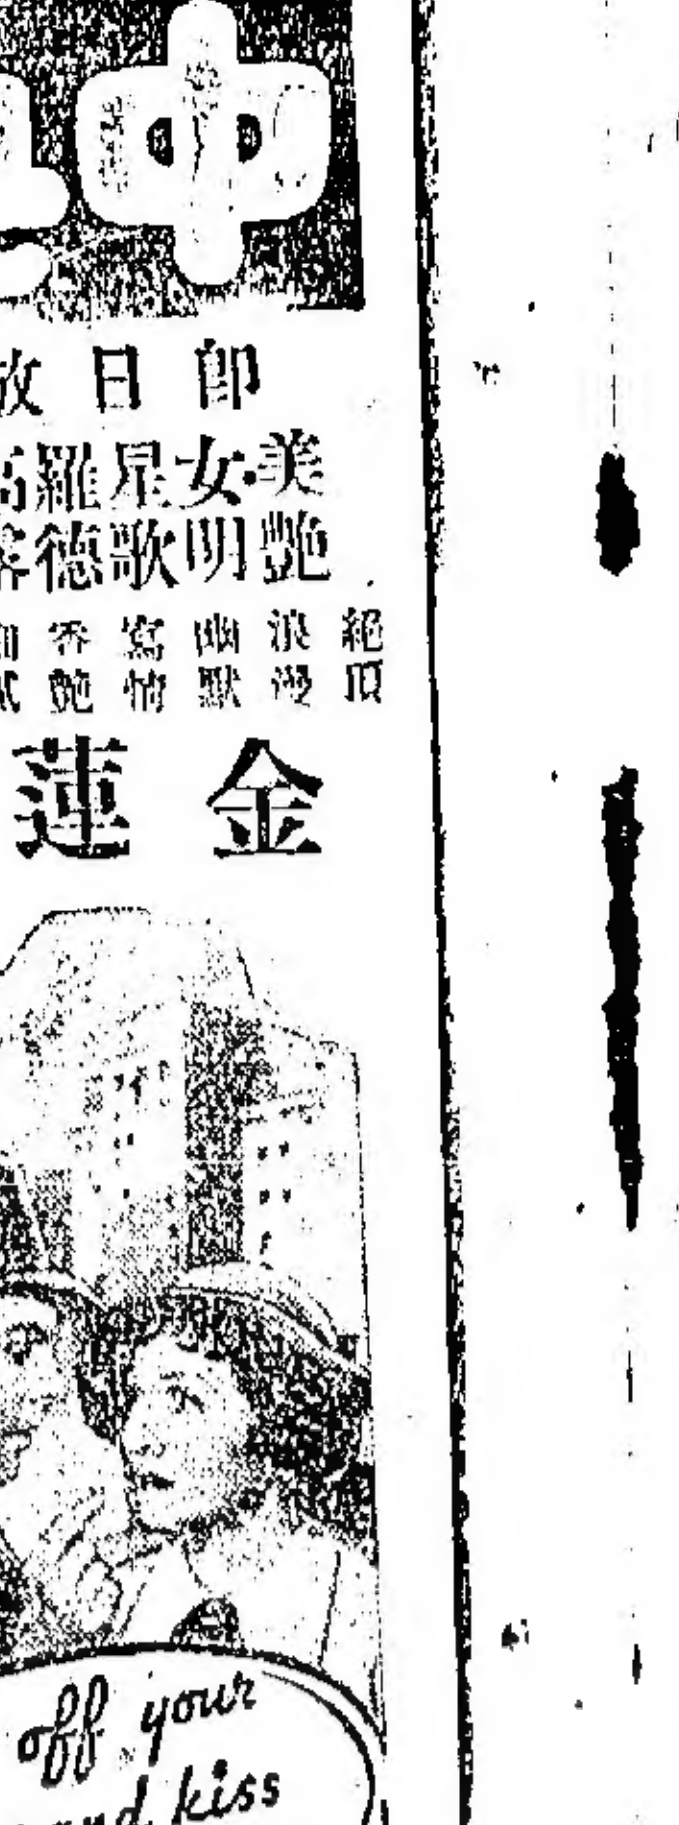 中
即日放
美艷女明星歌羅德
絕頂浪漫幽默寫情香艷
金蓮
off your
and kiss